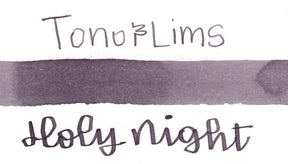 Tono&Lims
Holy Night